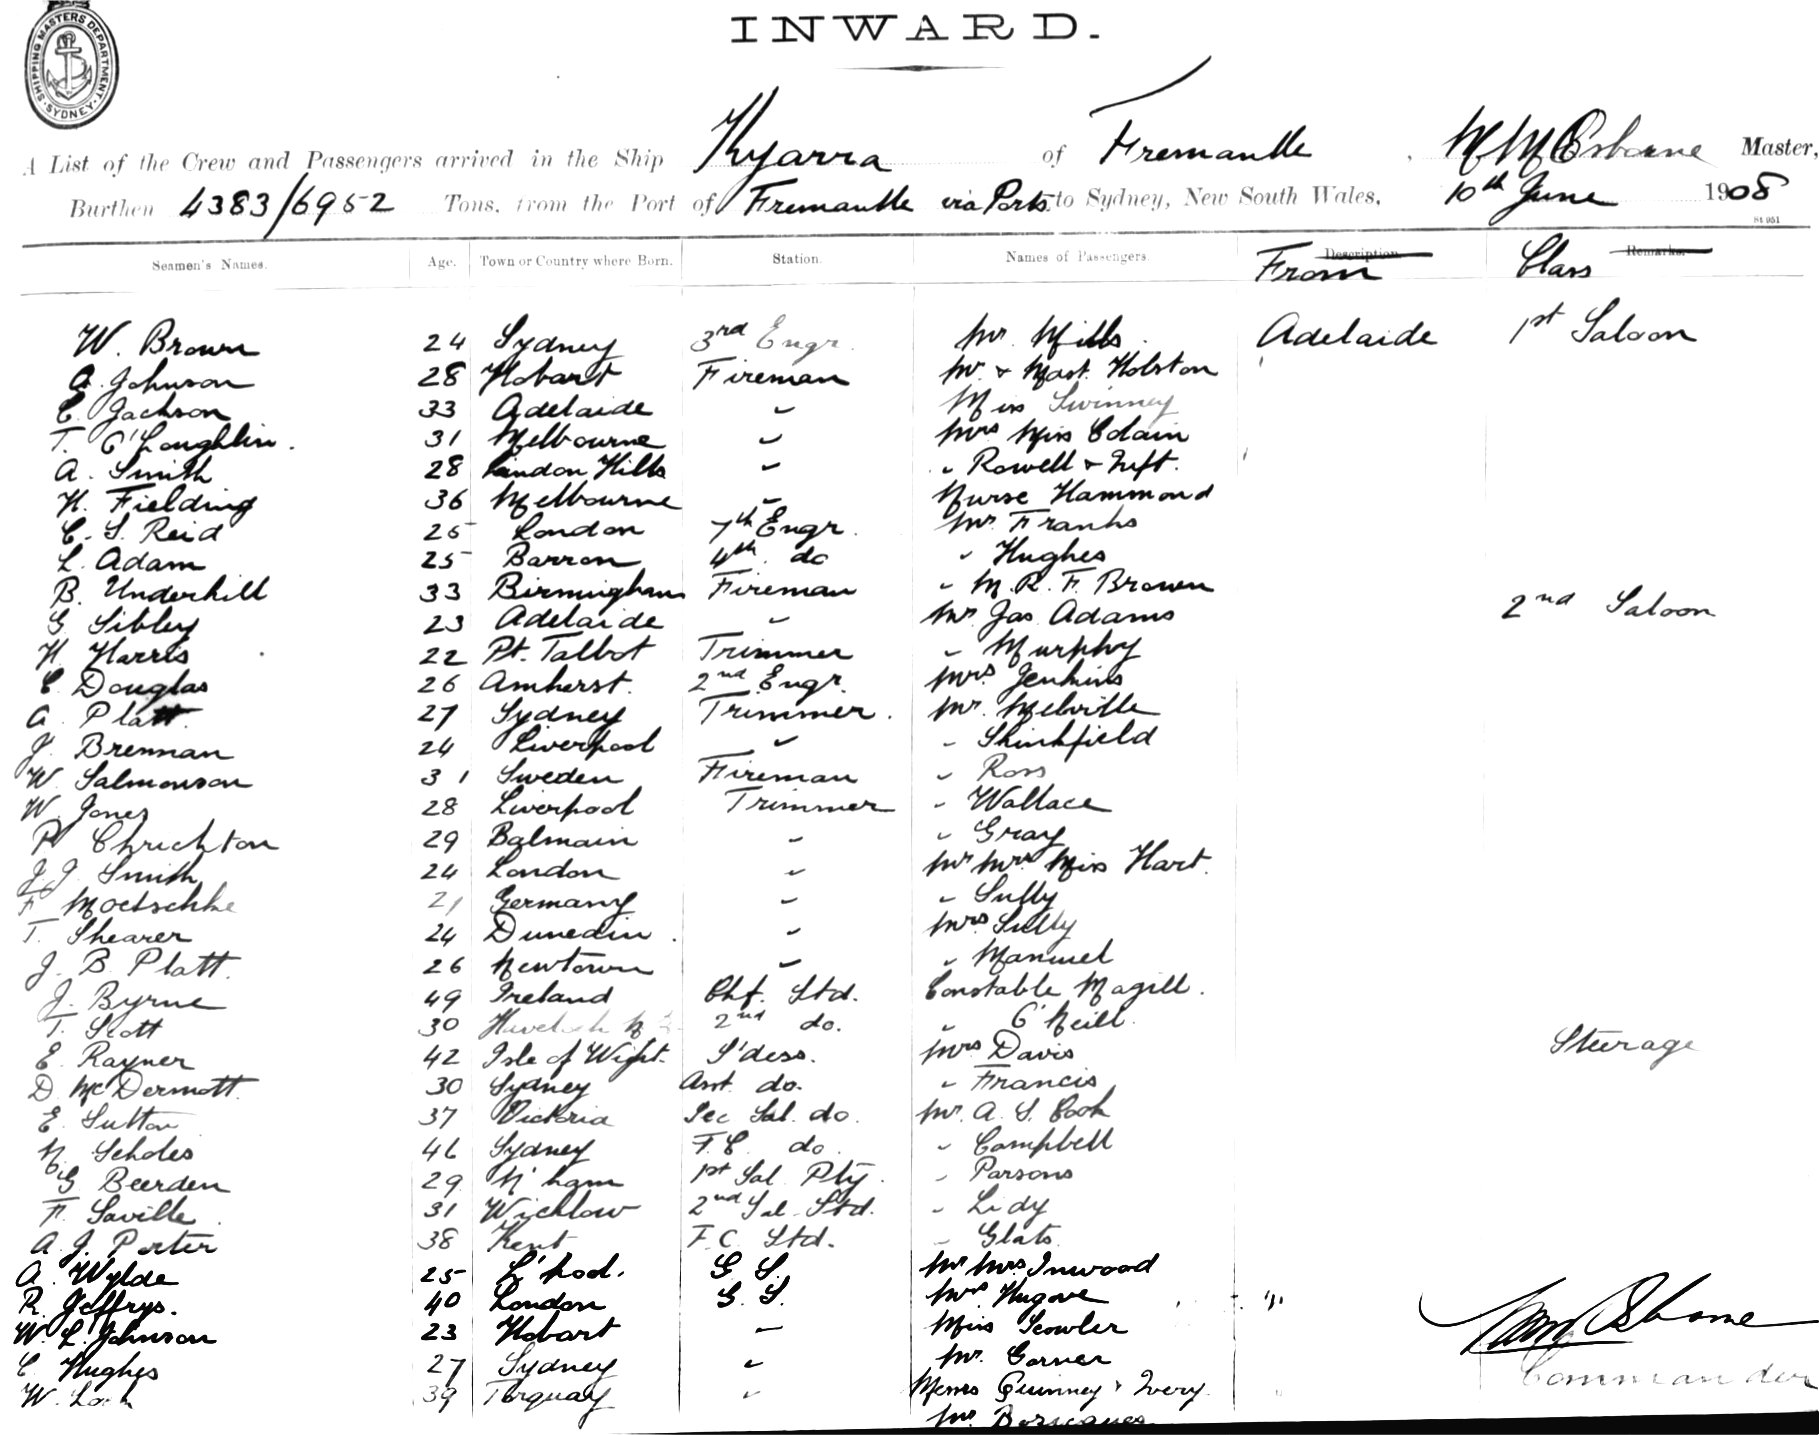 SHIPPING MASTERS DEPARTMENT. SYDNEY
INWARD.
A List of the Crew and Passengers arrived in the Ship Kyarra of Fremantle, Wm Osborne Master,
Burthen 4383/6952 Tons, from the Port of Fremantle via Ports to Sydney, New South Wales, 10th June 1908
St 951
Seamen's Names. Age. Town or Country where Born. Station. Names of Passengers. Description From Remarks. Class
W. Brown 24 Sydney 3rd Engr. Mr. Mills. Adelaide 1st Saloon
A. Johnson 28 Hobart Fireman Mr. & Mast. Holston
C. Jackson 33 Adelaide " Miss Swinney
T. O'Loughlin. 31 Melbourne " Mrs Miss Colain
A. Smith 28 Hills " " Rowell & Tuft.
H. Fielding 36 Melbourne " Nurse Hammond
C. S. Reid 25 London 7th Engr. Mr. Franks
L. Adam 25 Barron 4th do " Hughes
B. Underhill 33 Birmingham Fireman " M. R. F. Brown
G. Sibley 23 Adelaide " Mr. Jas. Adams 2nd Saloon
H. Harris 22 Pt. Talbot Trimmer " Murphy
C. Douglas 26 Amherst. 2nd Engr. Mrs Jenkins
A. Platt. 27 Sydney Trimmer. Mr. Melville
J. Brennan 24 Liverpool " " Shinkfield
W. Salmonson 31 Sweden Fireman " Ross
W. Jones 28 Liverpool Trimmer " Wallace
P. Chrichton 29 Balmain " " Gray
J. J. Smith 24 London " Mr Mrs Miss Hart.
F. Moetschke 21 Germany " " Sully
T. Shearer 24 Dunedin. " Mrs Sully
J. B. Platt. 26 Newtown " " Manuel
J. Byrne 49 Ireland Chf. Std. Constable Magill.
T. Scott 30 2nd do. " O'Neill.
E. Rayner 42 Isle of Wight. S'dess. Mrs Davis Steerage
D. McDermott. 30 Sydney Asst. do. " Francis
E. Sutton 37 Victoria Sec Sal. do. Mr. A. S. Cook
N. Scholes 46 Sydney F. C. do " Campbell
G. Beerden 29 N'ham 1st Sal. Pty. " Parsons
F. Saville. 31 Wicklow 2nd Sal. Std. " Lidy
A. J. Porter 38 Kent F. C. Std. " Glats.
A. Wylde 25 L'pool. G. S. Mr Mrs Inwood
R. Jeffrys. 40 London G. S. Mrs Hugove
W. L. Johnson 23 Hobart " Miss Scowler
C. Hughes 27 Sydney " Mr. Garner
W. 39 Torquay " Messrs Quinney & Ivery.
Mr.
Wm Osborne
Commander